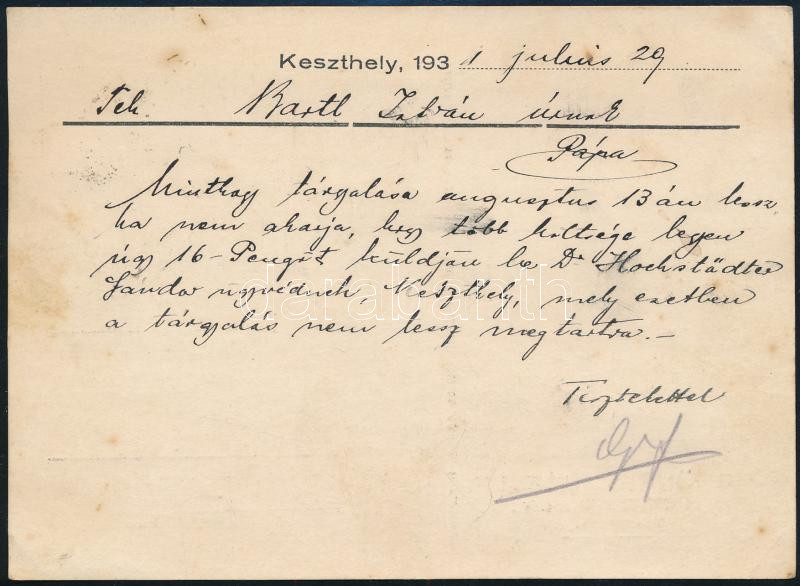 Keszthely, 1931 julius 29
Tek. Bartl István úrnak
Pápa
Minthogy tárgalása augusztus 13 án lessz,
ha nem akarja, hogy több költsége legyen
úgy 16- Pengőt küldjön be Dr Hochstädter
Sándor ügyvédnek, Keszthely, mely esetben
a tárgalás nem lessz megtartva.-
Tisztelettel
darabanth